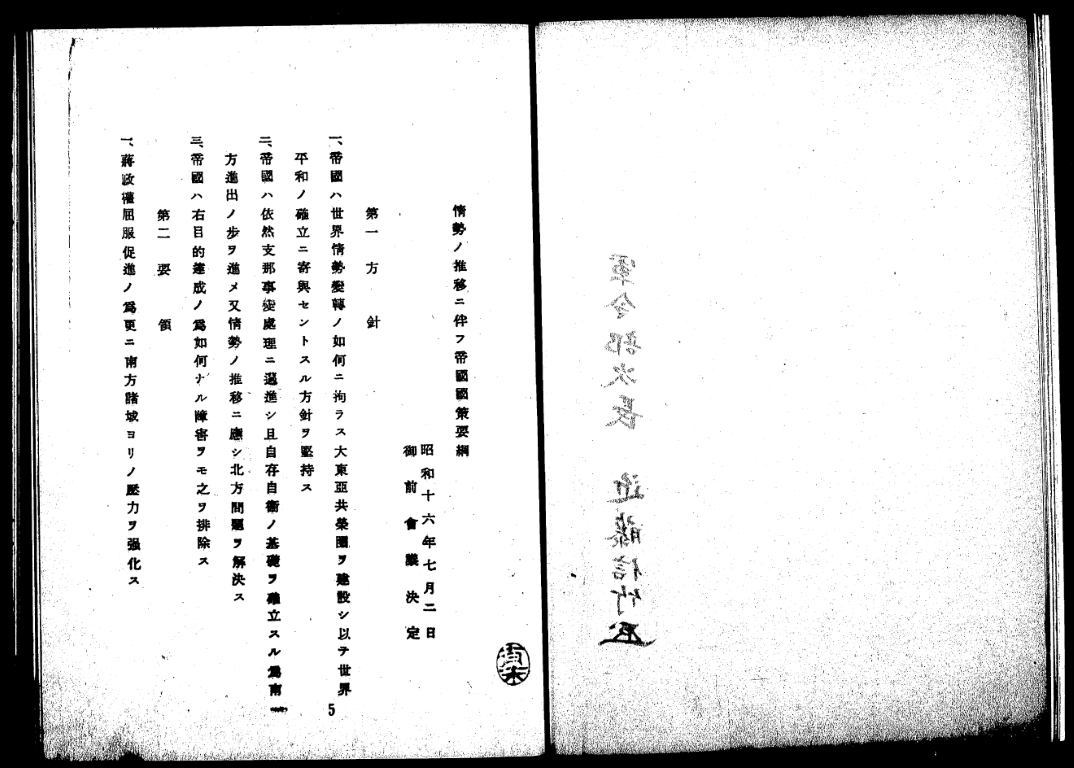 軍令部次長 近藤信竹
情勢ノ推移ニ伴フ帝國國策要綱
昭和十六年七月二日
御前會議決定
第一 方 針
一、帝國ハ世界情勢變轉ノ如何ニ拘ラス大東亞共榮圈ヲ建設シ以テ世界
平和ノ確立ニ寄與セントスル方針ヲ堅持ス
二、帝國ハ依然支那事變處理ニ邁進シ且自存自衞ノ基礎ヲ確立スル爲南
方進出ノ步ヲ進メ又情勢ノ推移ニ應シ北方問題ヲ解決ス
三、帝國ハ右目的達成ノ爲如何ナル障害ヲモ之ヲ排除ス
第二 要 領
一、蔣政權屈服促進ノ爲更ニ南方諸域ヨリノ壓力ヲ强化ス
5